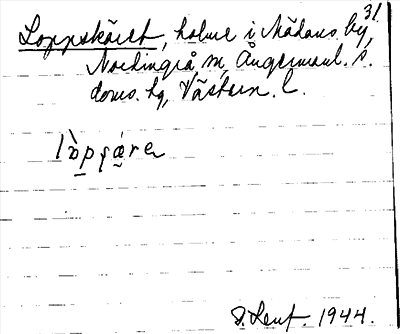 31.
Loppskäret, holme i Mädans by,
Nordingrå sn, Ångermanl. s.
doms. hg, Västern. l.
lòpʂǽre
S. Leuf. 1944.